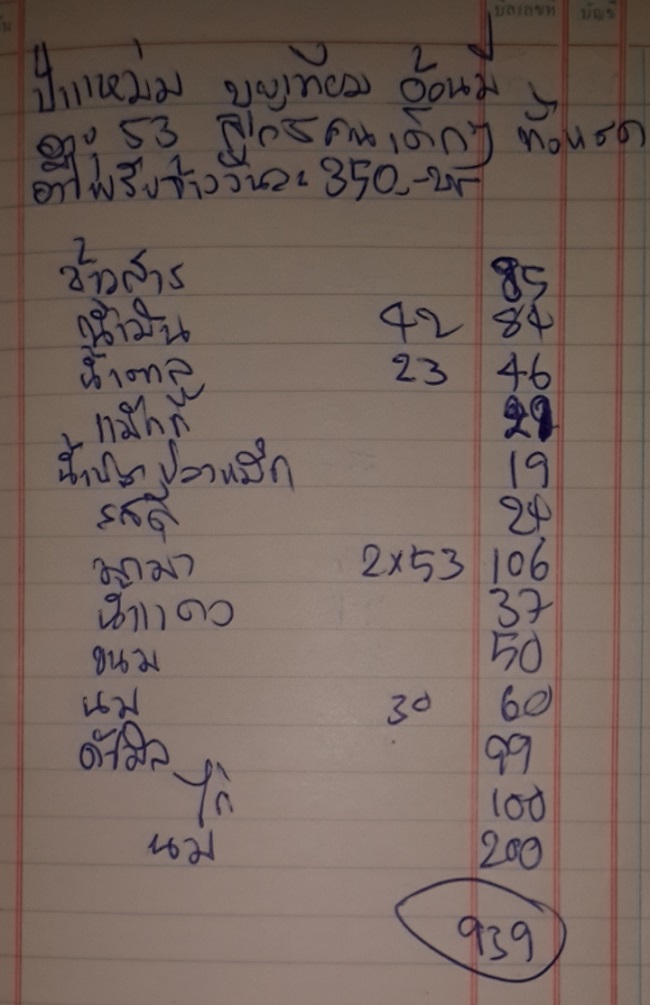 บัญชี
ป้าแหม่ม บุญเทียม อ้อนมี
อายุ 53 ลูก 5 คน เด็กๆ ทั้งหมด
วันละ 350.-บาท
ข้าวสาร 85
น้ำมัน 42 84
น้ำตาล 23 46
แม็กกี้ 29
น้ำปลา ปลาหมึก 19
รสดี 24
มาม่า 2x53 106
น้ำแดง 37
ขนม 50
นม 30 60
ดัชมิล 99
ไก่ 100
นม 200
939